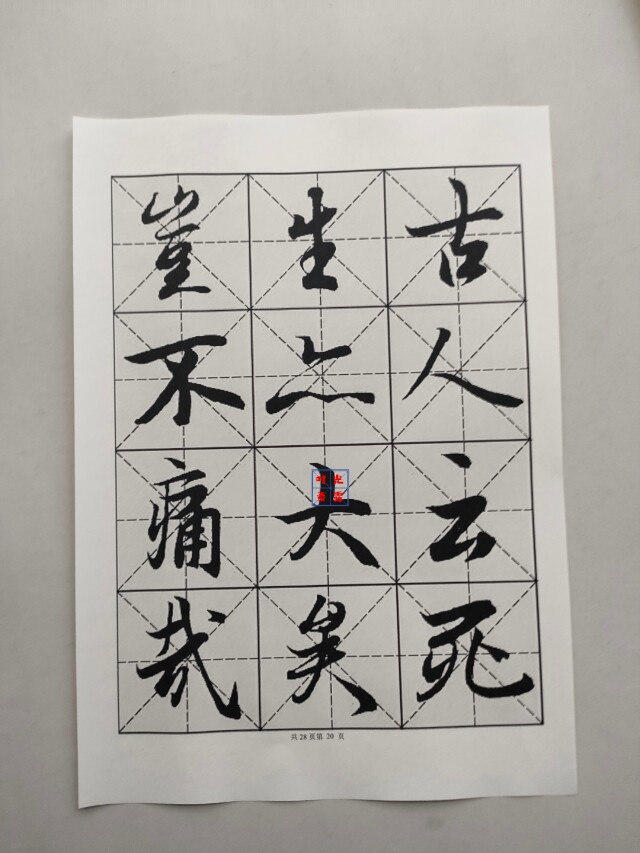 古人云死
生亦大矣
豈不痛哉
共28页第 20 页